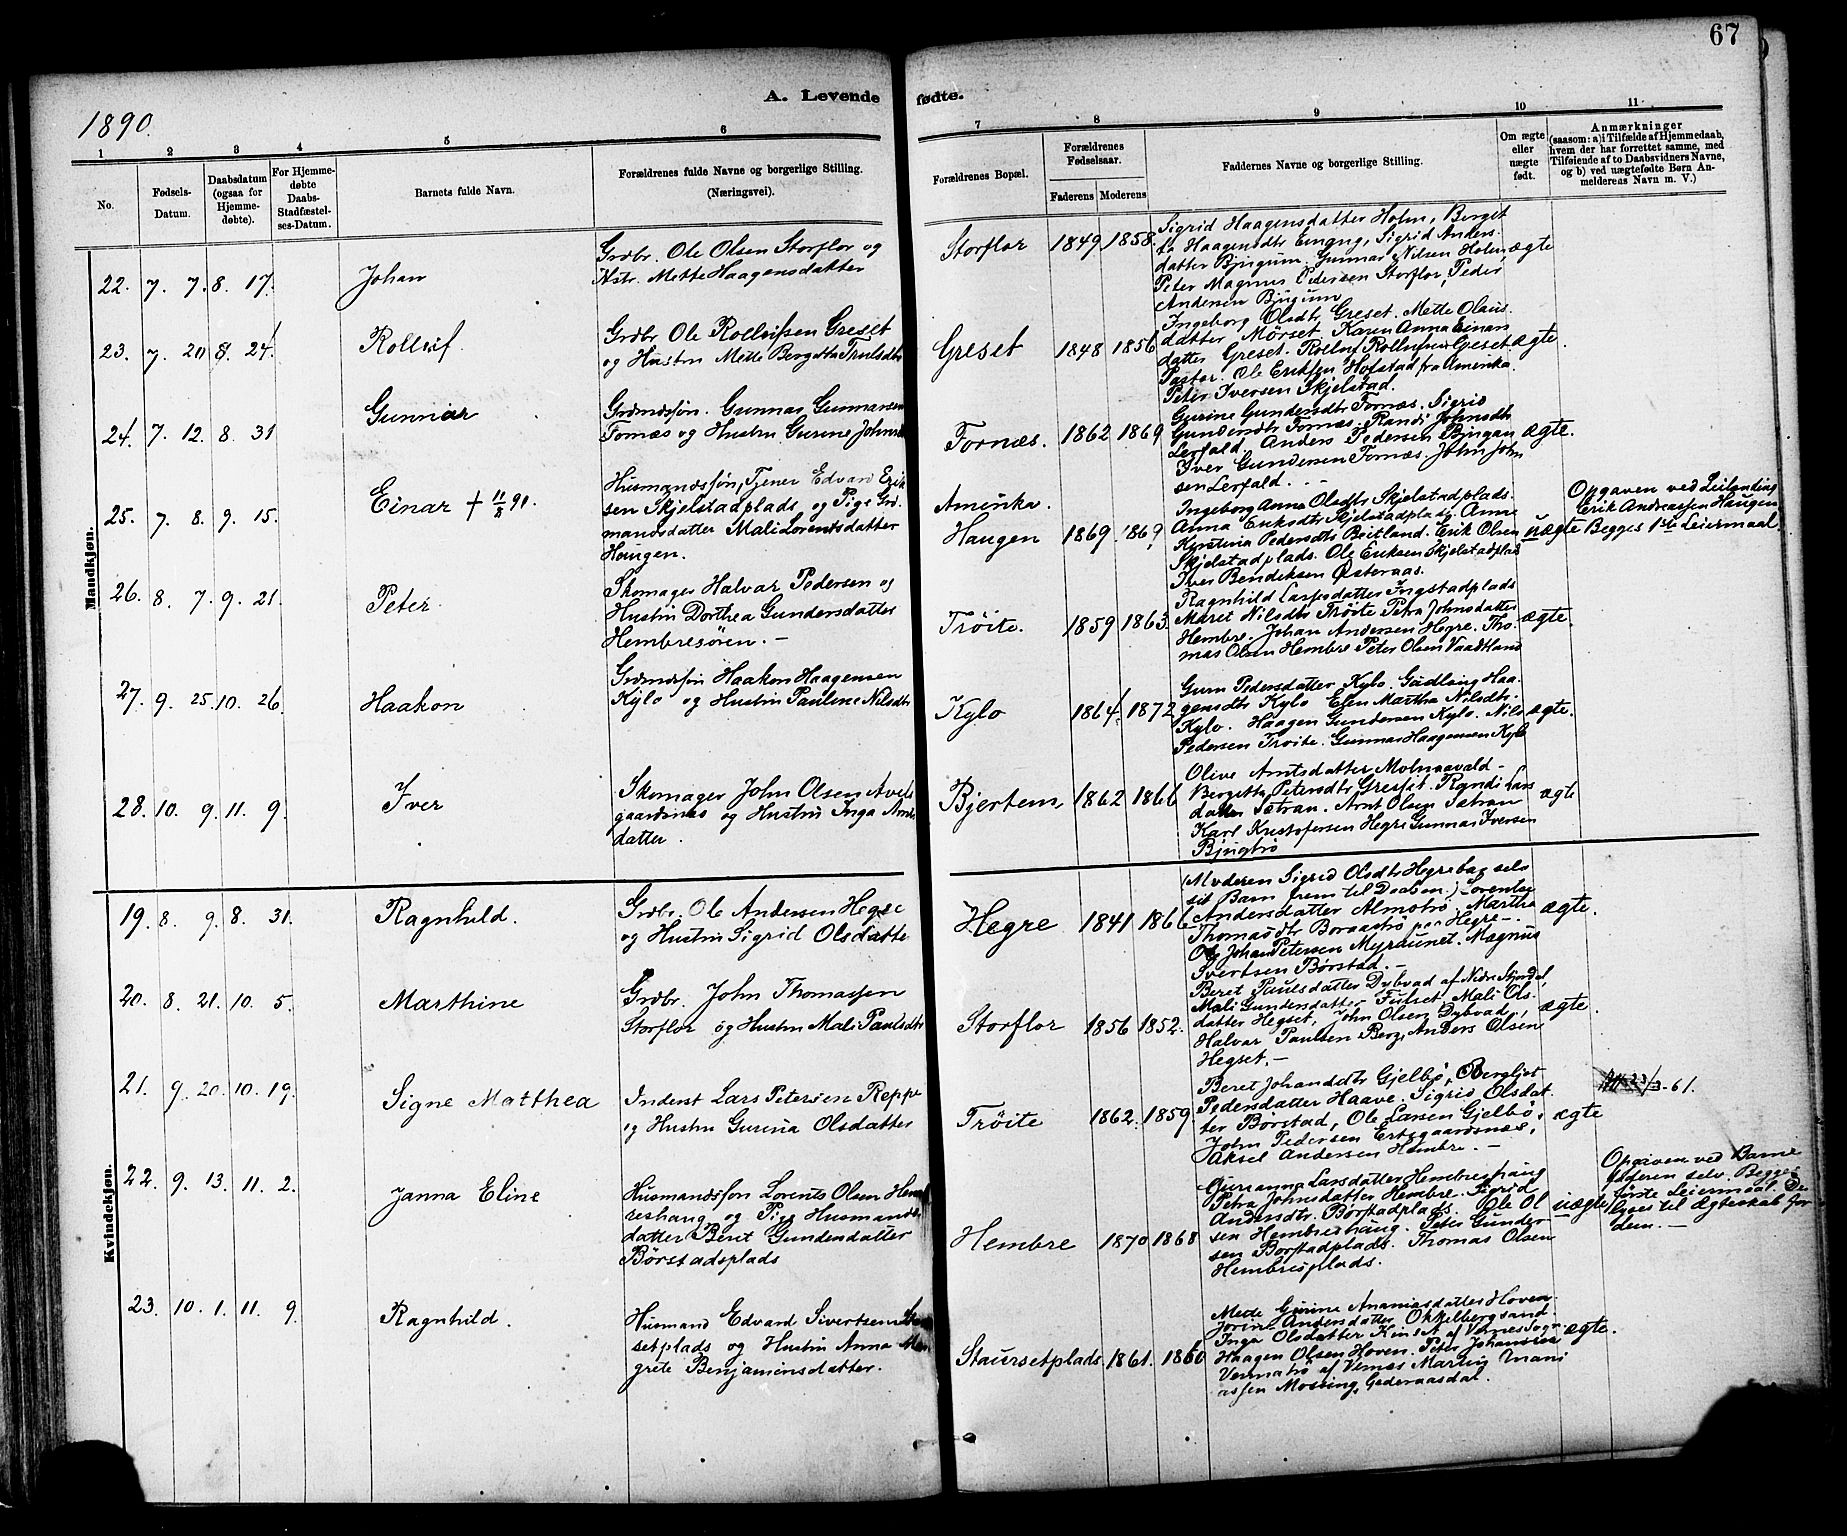 67
1890.
A. Levende fødte.
1 2 3 4 5 6 7 8 9 10 11
No.
Fødsels-Datum.
Daabsdatum (ogsaa for Hjemmedøbte).
For Hjemmedøbte Daabs-Stadfæstelses-Datum.
Barnets fulde Navn.
Forældrenes fulde Navne og borgerlige Stilling. (Næringsvei).
Forældrenes Bopæl.
Forældrenes Fødselsaar.
Faderens Moderens
Faddernes Navne og borgerlige Stilling.
Om ægte eller uægte født.
Anmærkninger
(saasom: a) i Tilfælde af Hjemmedaab, hvem der har forrettet samme, med Tilføiende af to Daabsvidners Navne, og b) ved uægtefødte Børn Anmelderens Navn m. V.)
Mandkjøn.
22. 7. 7. 8. 17. Johan
Grdbr. Ole Olsen Storflor og
Hstr. Mette Haagensdatter
Storflor 1849 1858.
Sigrid Haagensdatter Holm, Berget
ta Haagensdtr Eingng, Sigrid Anders
datter Bjugum. Gunnar Nilsen Holm,
Peter Magnus Pedersen Storflor, Peder
Andersen Bjugum
ægte
23. 7. 20. 8. 24. Rolluf
Grdbr Ole Rollufsen Greset
og Hustru Mette Bergitta Trulsdtr
Greset 1848 1856
Ingeborg Olsdtr Greset. Mette Olaus
datter Mørset. Karen Anna Einars
datter Greset. Rolluf Rollufsen Greset
Pastor. Ole Eriksen Hofstad fra Amerika.
Peter Iversen Skjelstad.
ægte.
24. 7. 12. 8. 31 Gunnar
Grdmdssøn. Gunnar Gunnarsen
Fornæs og Hustru Gurine Johnsd
Fornæs. 1862 1869
Gurine Gundersdtr Fornæs. Sigrid
Gundersdtr Fornæs. Randi Johnsdtr
Lerfald. Anders Pedersen Bjugan
Iver Gundersen Fornæs. John John
sen Lerfald.
ægte.
25. 7. 8. 9. 15. Einar + 11/2 91.
Husmandssøn, Tjener Edvard Erik
sen Skjelstadplads og Pige Grd
mandsdatter Mali Lorentsdatter
Haugen.
Amerika.
Haugen 1869. 1869
Ingeborg Anna Olsdtr Skjelstadplads.
Anna Eriksdtr Skjelstadplads, Anne
Kjerstina Pedersdtr Beitland. Erik Olsen
Skjelstadplads. Ole Eriksen Skjelstadplads
Iver Bendiksen Østeraas.
uægte
Opgaven ved Leilending
Erik Andreassen Haugen
Begges 1ste Leiermaal.
26. 8. 7. 9. 21. Peter
Skomager Halvar Pedersen og
Hustru Dorthea Gundersdatter
Hembresøren. –
Trøite. 1859 1863.
Ragnhild Larsdatter Ingstadplads
Maret Nilsdtr Trøite Petra Johnsdatter
Hembre. Johan Andersen Hegre. Tho
mas Olsen Hembre Peter Olsen Vaadtland
ægte.
27. 9. 25. 10. 26. Haakon
Grdmdssøn Haakon Haagensen
Kylo og Hustru Pauline Nilsdtr
Kylo 1864. 1872
Guru Pedersdatter Kylo. Gudlaug Haa
gensdtr Kylo Elen Martha Nilsdtr.
Kylo. Haagen Gundersen Kylo. Nils
Pedersen Trøite. Gunnar Haagensen Kylo
ægte.
28. 10. 9. 11. 9. Iver
Skomager John Olsen Avels
gaardsnæs og Hustru Inga Arnts
datter.
Bjertem 1862 1866
Olive Arntsdatter Molnaavald
Bergitta Petersdtr Gresset. Randi Lars
datter Sætran. Arnt Olsen Sætran
Karl Kristofersen Hegre Gunnar Iversen
Bjugtrø
ægte
Kvindekjøn.
19. 8. 9. 8. 31. Ragnhild.
Grdbr. Ole Andersen Hegre
og Hustru Sigrid Olsdatte
Hegre 1841 1866
(Moderen Sigrid Olsdtr Hegre bar selv
sit Barn frem til Daaben.) Lorentse
Andersdatter Almotrø. Martha
Thomasdtr Boraastrø paa Hegre –
Ole Johan Petersen Myraunet. Magnus
Sivertsen Børstad. –
ægte.
20. 8. 21. 10. 5. Marthine
Grdbr. John Thomassen
Storflor og Hustru Mali Paulsdtr
Storflor 1856 1852.
Beret Paulsdatter Dybvad af Nedre Stjørdal,
Mali Gundersdatter Fulset, Mali Ols
datter Hegset, John Olsen Dybvad,
Halvar Paulsen Berg, Anders Olsen
Hegset. –
ægte.
21. 9. 20. 10. 19. Signe Matthea
Inderst Lars Petersen Reppe
og Hustru Gurina Olsdatter
Trøite 1862. 1859.
Beret Johansdtr Gjelbø, Bergljot
Pedersdatter Haave, Sigrid Olsdat
ter Børstad, Ole Larsen Gjelbø,
John Pedersen Ertsgaardsnæs,
Aksel Andersen Hembre. –
ægte
23/3-61.
22. 9. 13. 11. 2. Janna Eline
Husmandssøn Lorents Olsen Hemb
reshaug og Pige Husmands
datter Beret Gundersdatter
Børstadsplads
Hembre 1870 1868
Gurianna Larsdatter Hembreshaug
Petra Johnsdatter Hembre. Sigrid
Andersdtr. Børstadplads. Ole Ol
sen Hembreshaug. Peter Gunder
sen Børstadplads. Thomas Olsen
Hembresplads.
uægte
Opgiven ved Barne
faderen selv. Begges
første Leiermaal. De
lyses til Ægteskab for
dem. –
23. 10. 1. 11. 9. Ragnhild.
Husmand Edvard Sivertsen
setplads og Hustru Anna Mar
grete Benjaminsdatter.
Staursetplads. 1861. 1860
Mette Gurine Ananiasdatter Hoven
Jorine Andersdatter Okkelbergsand.
Inga Olsdatter Kinset af Værnes Sogn
Haagen Olsen Hoven. Peter Johanssen
Vermatrø af Vernes Martin Anani
assen Mosing, Gederaasdal.
ægte.